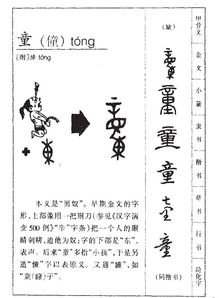 童 (僮) tóng
〔附〕憧 tóng
本文是“男奴”。早期金文的字
形，上部像用一把刑刀（参见《汉字演
变500例》“辛”字条）把一个人的眼
睛刺瞎，迫他为奴；字的下部是“东”，
表声。后来“童”多指“小孩”，于是另
造“僮”字以表原义。又通“瞳”，如
“童(瞳)子”。
(缺)
童
童
(同楷书)
甲骨文
金文
小篆
隶书
楷书
草书
行书
简化字